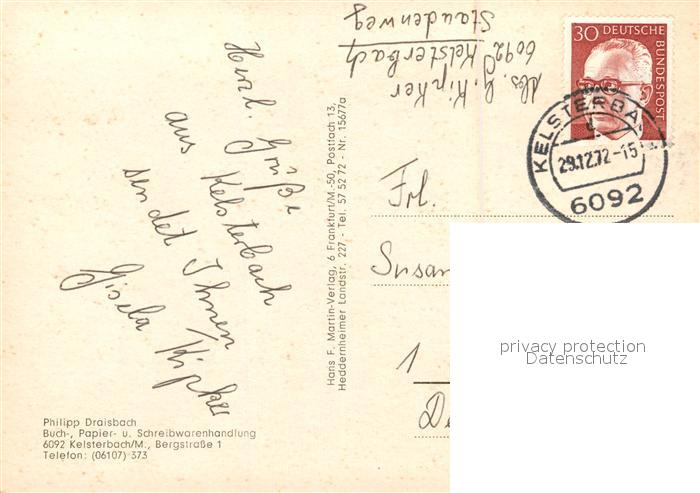 Herzl. Grüße
aus Kelsterbach
sendet Ihnen
Gisela Kipker
Philipp Draisbach
Buch-, Papier- u. Schreibwarenhandlung
6092 Kelsterbach/M., Bergstraße 1
Telefon: (06107) 373
Hans F. Martin-Verlag, 6 Frankfurt/M.-50, Postfach 13,
Heddernheimer Landstr. 227 - Tel. 57 52 72 - Nr. 15677a
Abs. G. Kipker
6092 Kelsterbach
Staudenweg
30 DEUTSCHE
BUNDESPOST
KELSTERBA
29.12.72-15
6092
Frl.
Susan
1
De
privacy protection
Datenschutz